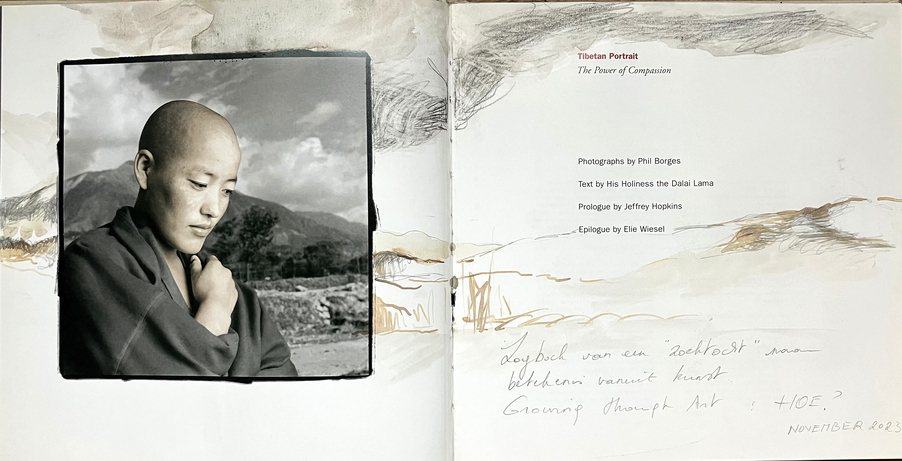 Tibetan Portrait
The Power of Compassion
Photographs by Phil Borges
Text by His Holiness the Dalai Lama
Prologue by Jeffrey Hopkins
Epilogue by Elie Wiesel
Logboek van een "zoektocht" naar
betekenis vanuit kunst.
Growing through Art : HOE?
NOVEMBER 2023